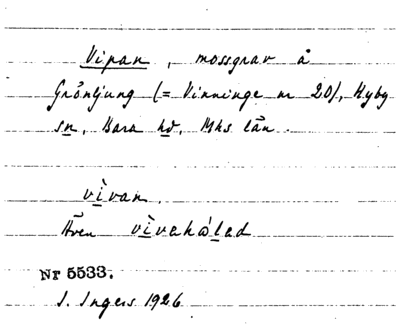 Vipan, mossgrav å
Grönljung (= Vinninge nr 20), Hyby
sn, Bara hd, Mhs län.
vìvan.
Även vìvahå̀led
Nr 5533.
I. Ingers 1926